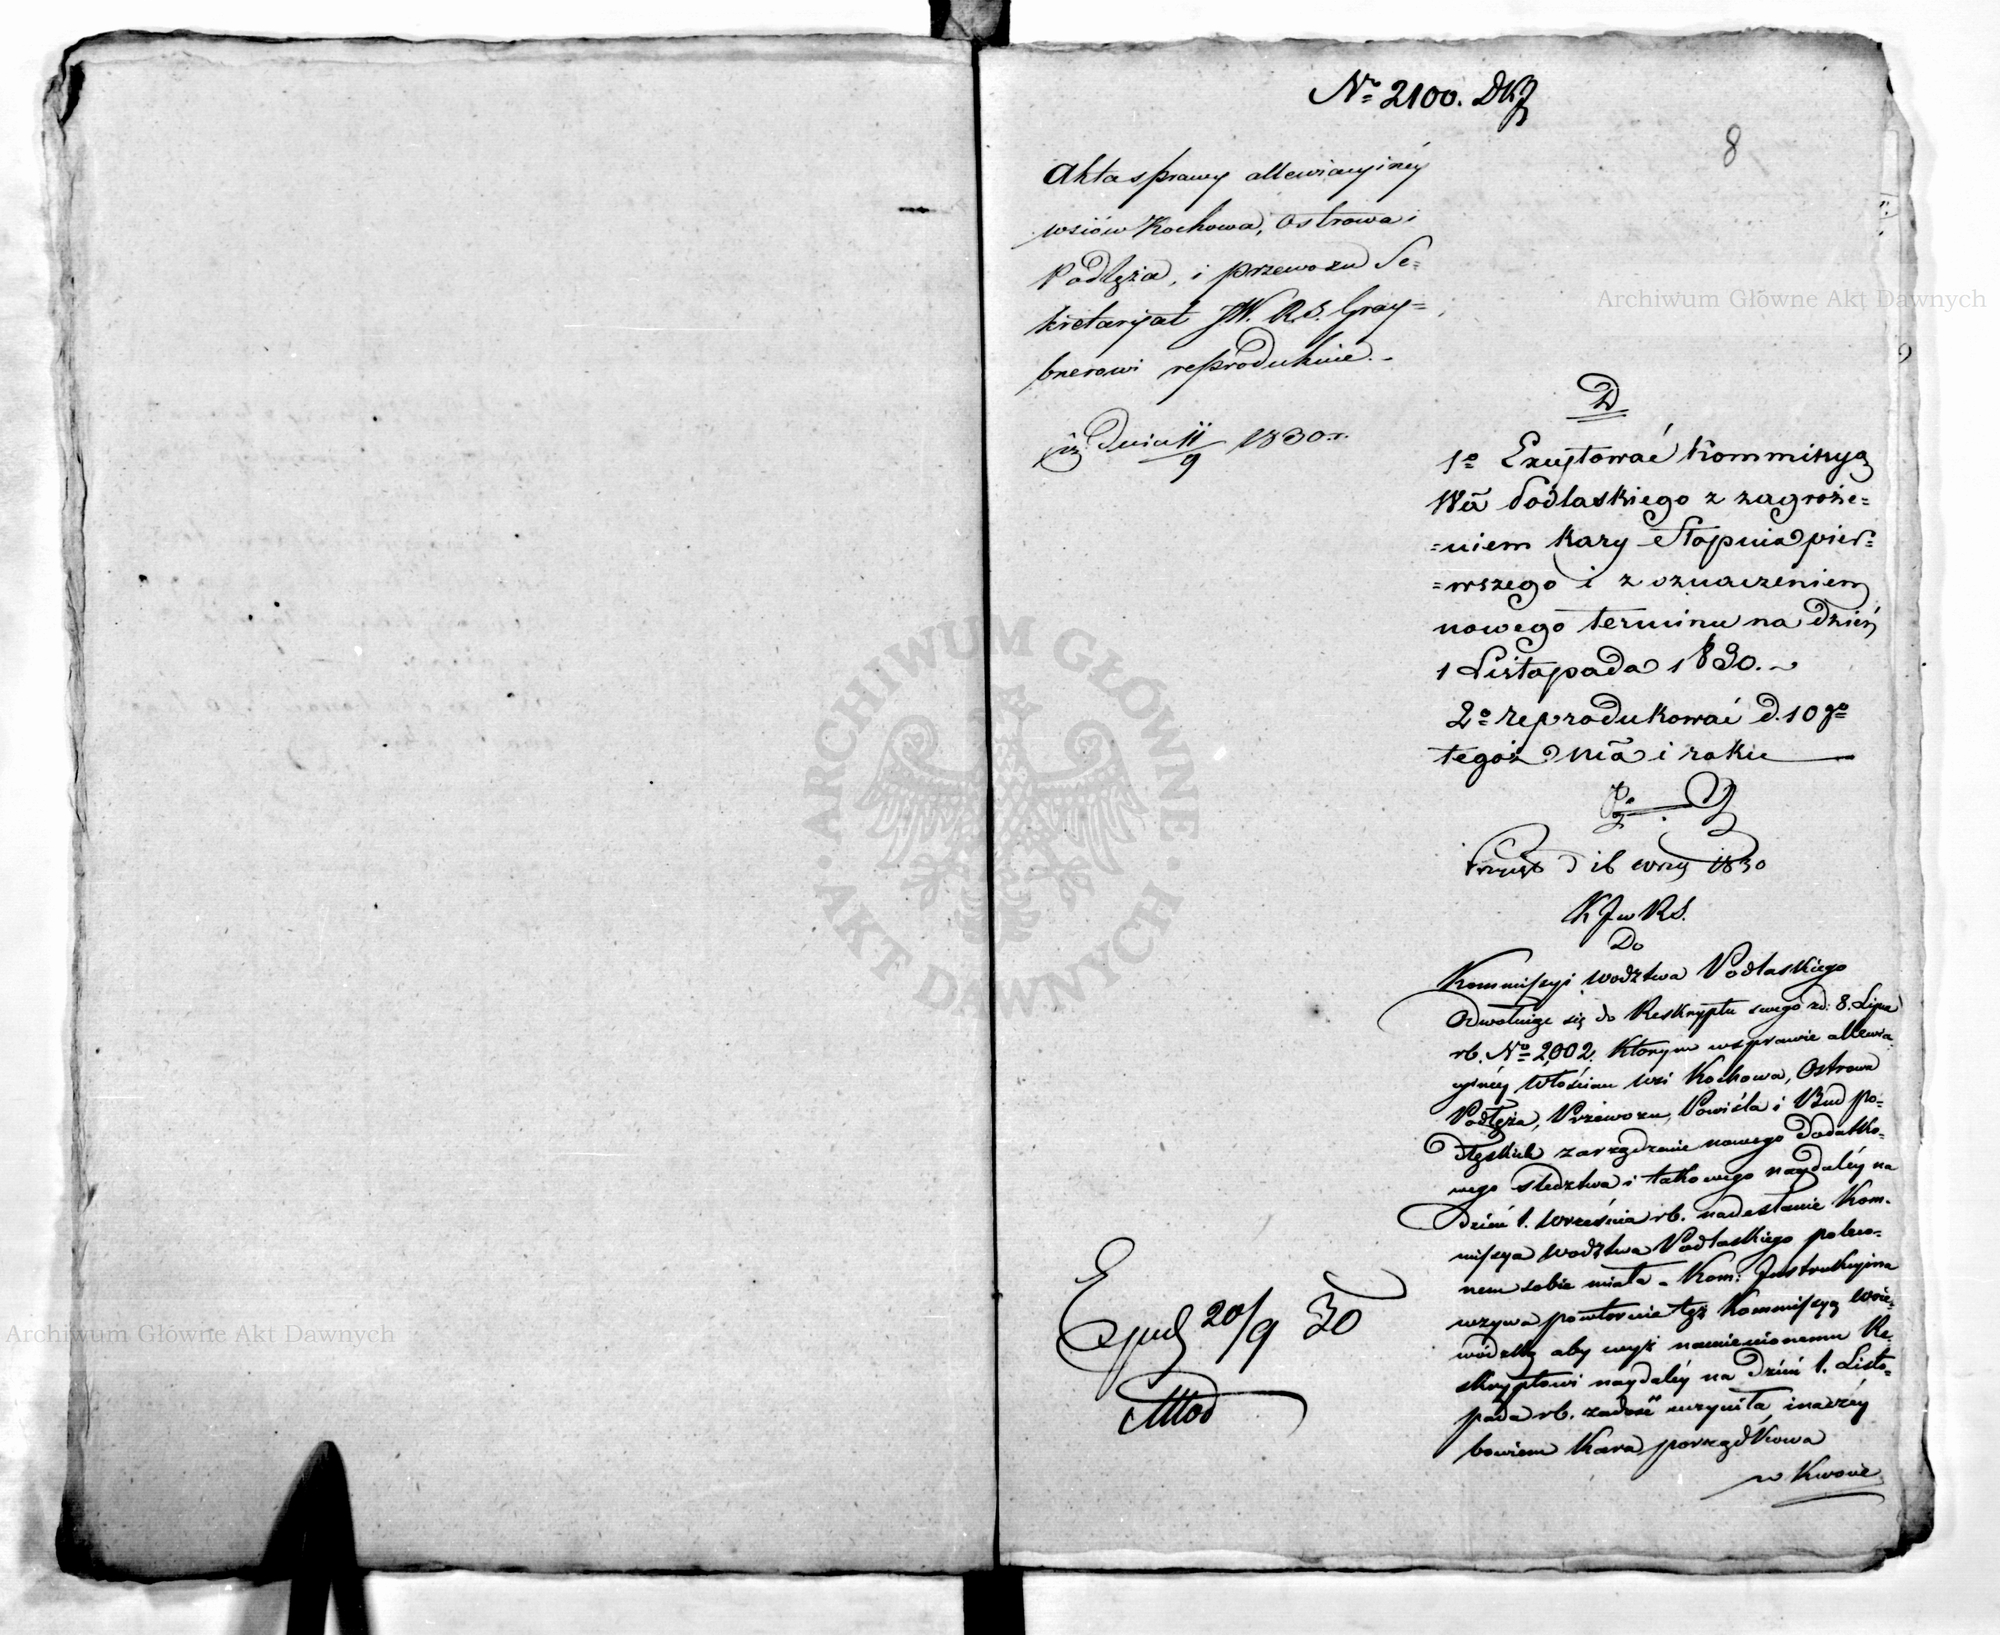 No 2100. DKJ
8
Akta sprawy allewiacyinéy
wsiów Kochowa, Ostrowa i
Podłęża, i przewozu Se=
kretaryat JW. R.S. Gray=
bnerowi reprodukuie.-
dnia 11/9 1830 r.
D
1o Excytować Kommissyą
Wa Podlaskiego z zagroże=
=niem kary stopnia pier=
=wszego i z oznaczeniem
nowego terminu na dzień
1 Listopada 1830.
2o reprodukować d. 10go
tegoż ma i roku
Przyięto d 16 wrzs 1830
K J w R S.
Do
Kommissyi Wodztwa Podlaskiego
Odwołuiąc się do Reskryptu swego zd: 8. Lipca
rb. No 2,002. którym w sprawie allewia
cyinéy Włościan wsi Kochowa, Ostrowa
Podłęża, Przewozu, Powiśla i Bud po=
dłęskich zarządzenie nowego dodatko=
wego śledztwa i takowego naydaléy na
dzień 1. Września rb. nadesłanie Kom=
missya Wodztwa Podlaskiego poleco=
nem sobie miała - Kom: Instrukcyjna
wzywa powtórnie tęż Kommissyą Woie=
wódzką aby wyż namienionemu Re=
skryptowi naydaléy na dzień 1. Listo=
pada rb. zadość uczyniła inaczéy
bowiem kara porządkowa
w kwocie
Archiwum Główne Akt Dawnych
Archiwum Główne Akt Dawnych
ARCHIWUM GŁÓWNE
AKT DAWNYCH
Exped 20/9 30